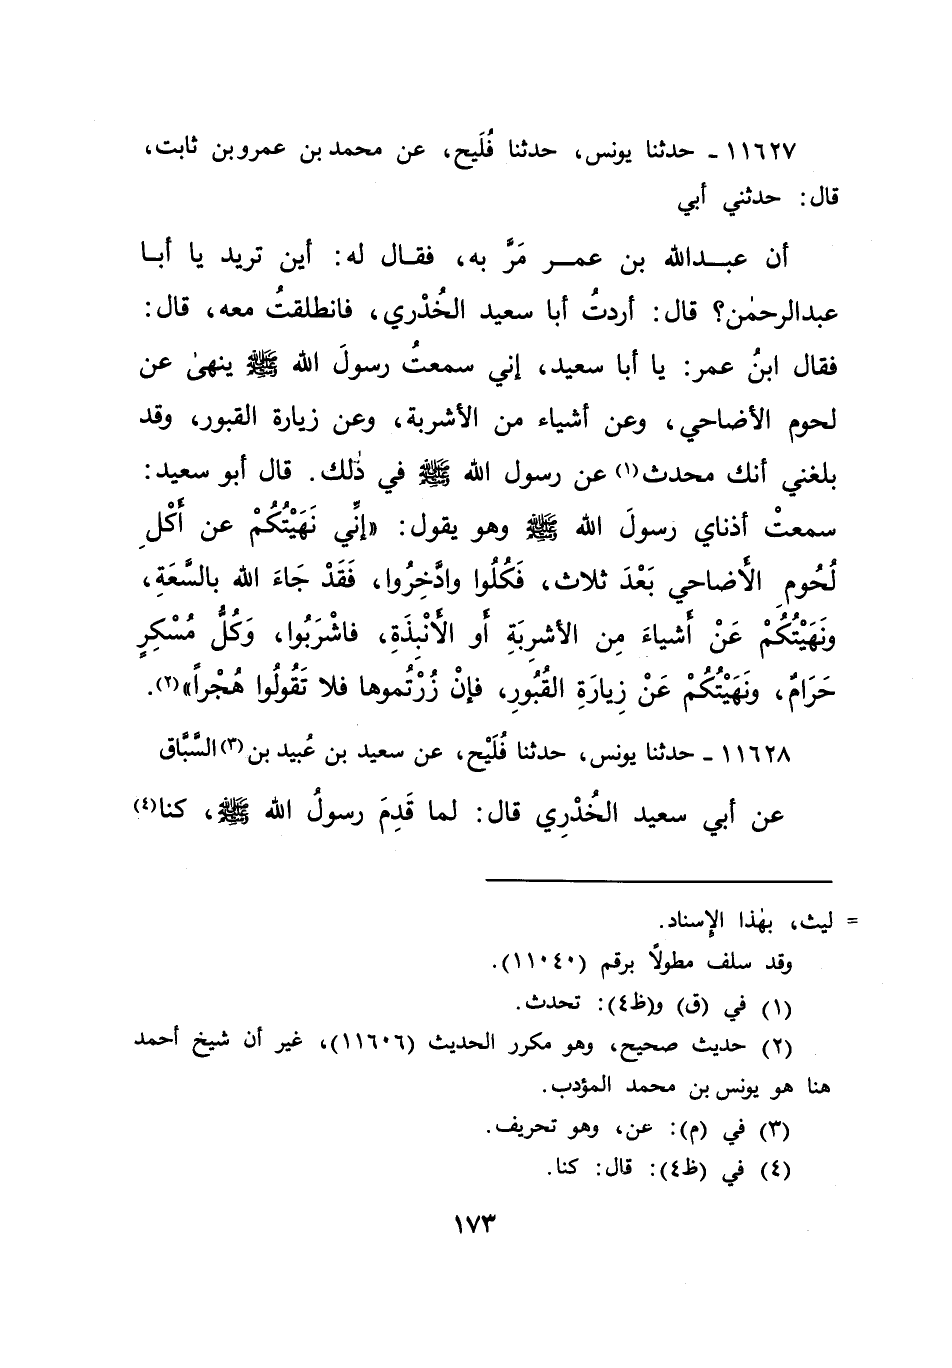 ١١٦٢٧ ـ حدثنا يونس، حدثنا فُلَيح، عن محمد بن عمرو بن ثابت،
قال: حدثني أبي
أن عبدالله بن عمر مَرَّ به، فقال له: أين تريد يا أبا
عبدالرحمٰن؟ قال: أردتُ أبا سعيد الخُدْري، فانطلقتُ معه، قال:
فقال ابنُ عمر: يا أبا سعيد، إني سمعتُ رسولَ الله ﷺ ينهىٰ عن
لحوم الأضاحي، وعن أشياء من الأشربة، وعن زيارة القبور، وقد
بلغني أنك محدث(١) عن رسول الله ﷺ في ذٰلك. قال أبو سعيد:
سمعتْ أذناي رسولَ الله ﷺ وهو يقول: «إنِّي نَهَيْتُكُمْ عن أَكْلِ
لُحُومِ الأَضاحي بَعْدَ ثلاث، فَكُلُوا وادَّخِرُوا، فَقَدْ جَاءَ الله بالسَّعَةِ،
ونَهَيْتُكُمْ عَنْ أَشياءَ مِن الأشرِبَةِ أو الأَنْبِذَةِ، فاشْرَبُوا، وَكُلُّ مُسْكِرٍ
حَرَامٌ، ونَهَيْتُكُمْ عَنْ زِيارَةِ القُبُورِ، فإنْ زُرْتُموها فلا تَقُولُوا هُجْراً»(٢).
١١٦٢٨ ـ حدثنا يونس، حدثنا فُلَيْح، عن سعيد بن عُبيد بن(٣) السَّبَّاق
عن أبي سعيد الخُدْرِي قال: لما قَدِمَ رسولُ الله ﷺ، كنا(٤)
= ليث، بهٰذا الإسناد.
وقد سلف مطولًا برقم (١١٠٤٠).
(١) في (ق) و(ظ٤): تحدث.
(٢) حديث صحيح، وهو مكرر الحديث (١١٦٠٦)، غير أن شيخ أحمد
هنا هو يونس بن محمد المؤدب.
(٣) في (م): عن، وهو تحريف.
(٤) في (ظ٤): قال: كنا.
١٧٣